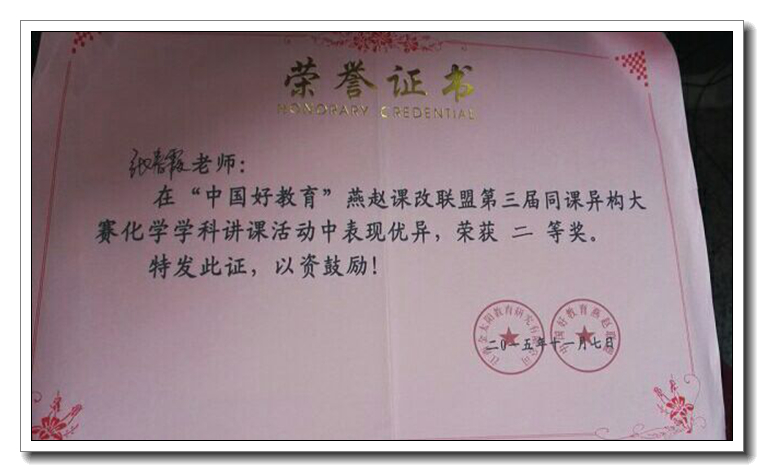 荣誉证书
HONORARY CREDENTIAL
张春霞老师：
在“中国好教育”燕赵课改联盟第三届同课异构大
赛化学学科讲课活动中表现优异，荣获 二 等奖。
特发此证，以资鼓励！
中国好教育燕赵联盟
二〇一五年十一月七日